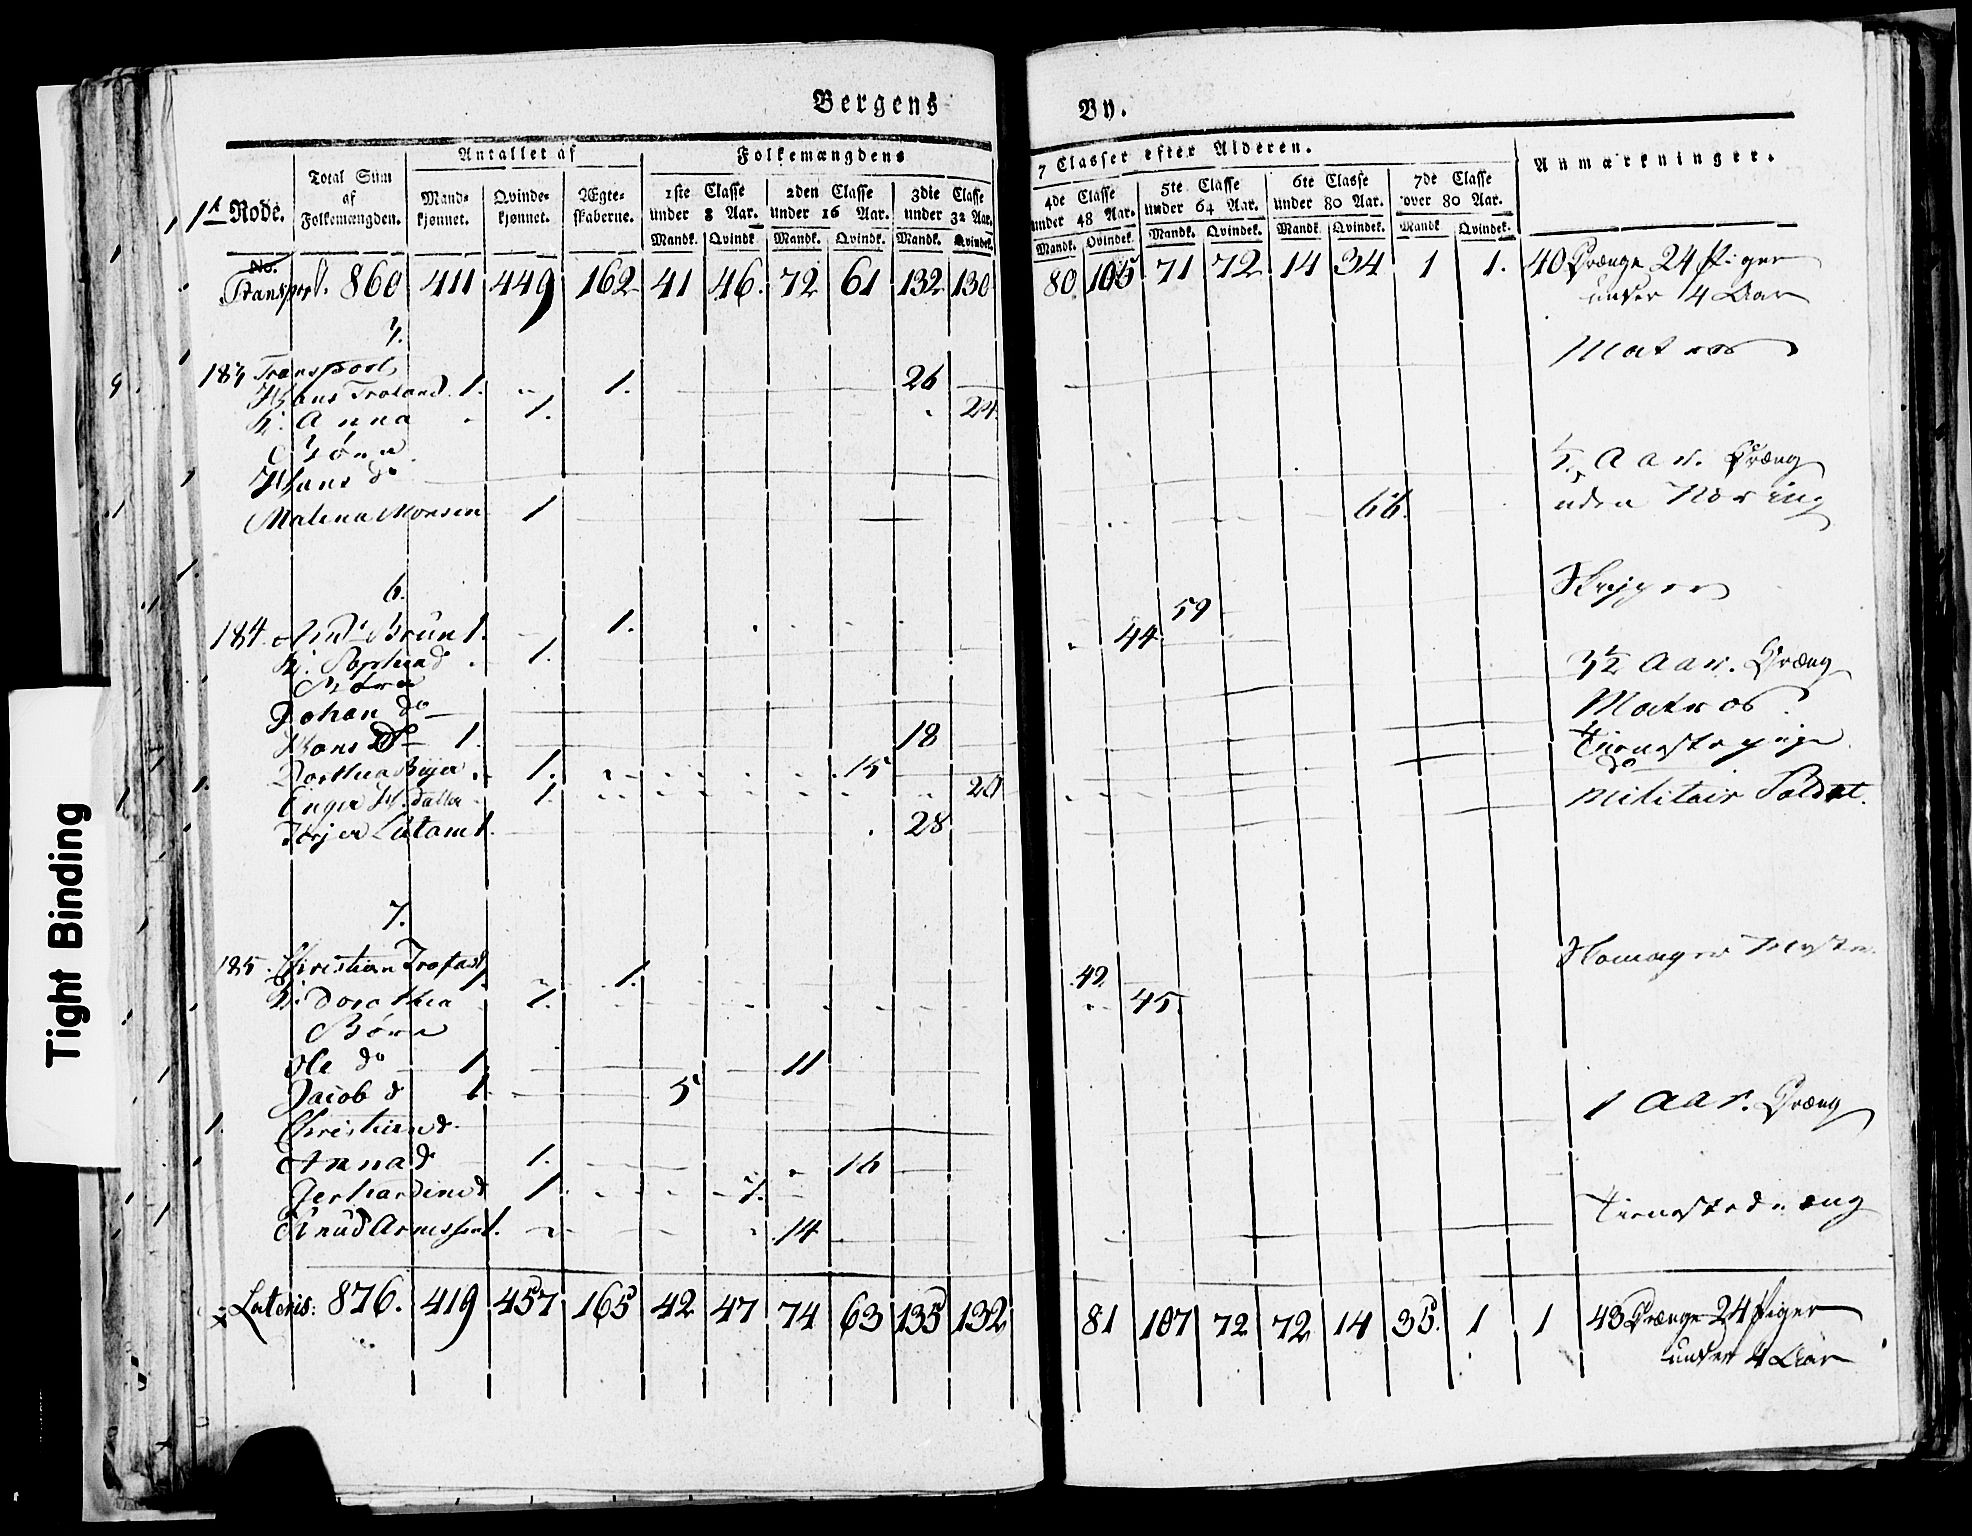 Tight Binding
Bergens By.
1te Rode.
Total Sum af Folkemængden.
Antallet af
Mandkjønnet. Qvindekjønnet. Ægteskaberne.
Folkemængdens 7 Classer efter Alderen.
1ste Classe under 8 Aar. 2den Classe under 16 Aar. 3die Classe under 32 Aar. 4de Classe under 48 Aar. 5te Classe under 64 Aar. 6te Classe under 80 Aar. 7de Classe over 80 Aar.
Anmærkninger.
Mandk. Qvindk. Mandk. Qvindk. Mandk. Qvindek. Mandk. Qvindek. Mandk. Qvindek. Mandk. Qvindek. Mandk. Qvindek.
No.
Transport. 860 411 449 162 41 46 72 61 132 130 80 105 71 72 14 34 1 1. 40 Drænge 24 Piger
under 4 Aar
183 Transport
Hans Troland. 1. 1. 26 Matros
K. Anna 1. 24
Børn
Hans do Aar. Dræng
Malena Monsen 1 66. uden Næring
6.
184 Brun 1. 1. 59 Skipper
K. 1. 44
Børn
Johan do ½ Aar. Dræng
Hans do 1. 18 Matros
Dorthea 1. 15 Tienestepige
1. 20 do
28 Militair Soldat.
7.
185. Christian Trofast 1. 1. 42
K. Dorothea 1. 45
Børn
Ole do 1. 11
Jacob d 1 5
Christian d. 1 Aar. Dræng
Anna d 1. 16
Gerhardine d 1. 7.
Knud 1. 14 Tienestedræng
Lateris: 876. 419 457 165 42 47 74 63 135 132 81 107 72 72 14 35. 1 1 43 Drænge 24 Piger
under 4 Aar